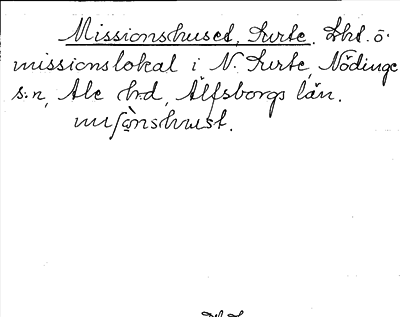 Missionshuset, Surte. Lht. o.
missionslokal i N. Surte, Nödinge
s:n, Ale h:d, Älfsborgs län.